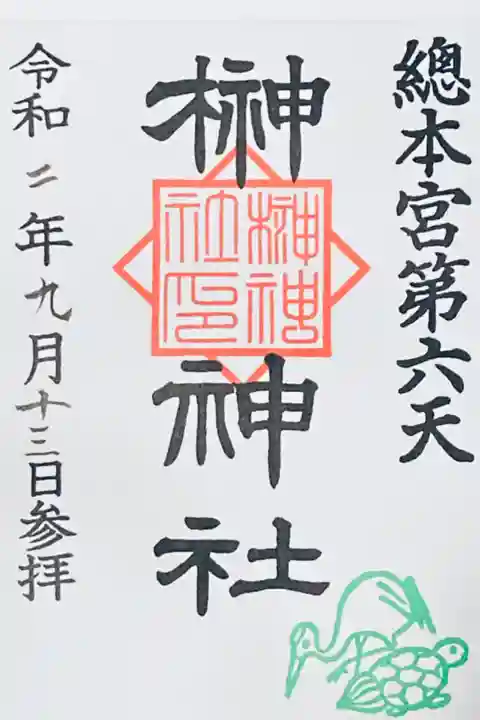 總本宮第六天
榊神社
榊神社印
令和二年九月十三日参拝